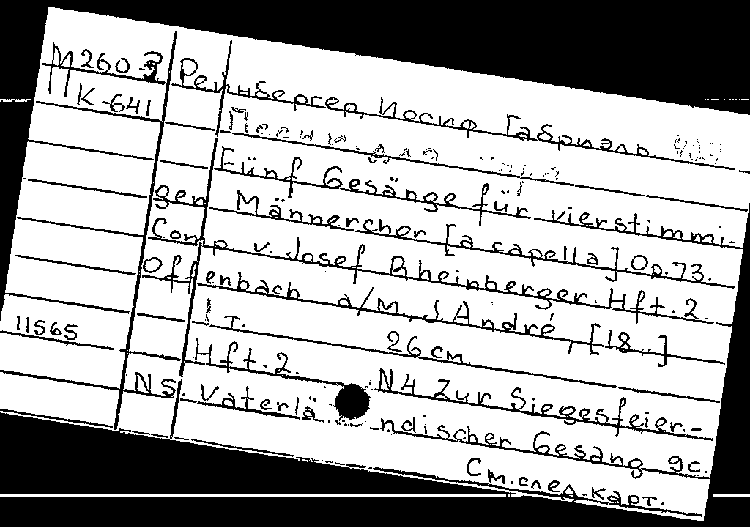 М260-3 Рейнбергер, Иосиф Габриэль
К-641
Песни для хора
Fünf Gesänge für vierstimmi-
gen Männercher [a capella]. Op. 73.
Comp v. Josef Rheinberger. Hft. 2
Offenbach a/M, J André, [18..]
1 т. 26 cm
11565
Hft. 2. N 4 Zur Siegesfeier.-
N 5. Vaterländischer Gesang 9c.
См. след. карт.